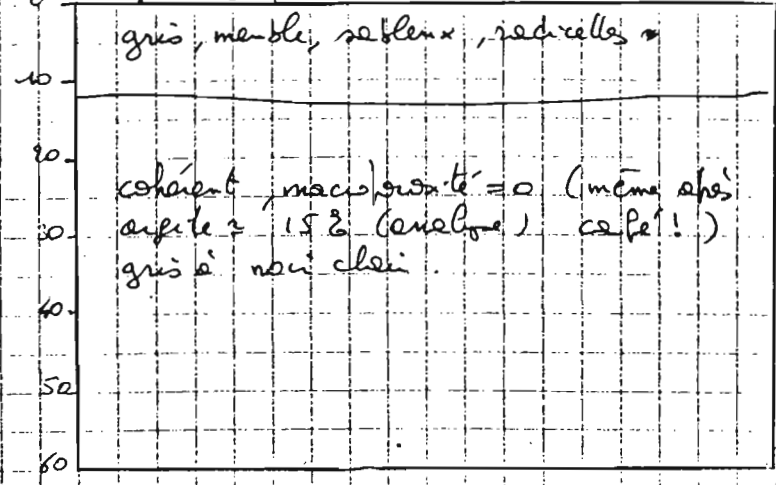 gris, meuble, sableux, radicelles
10
20
cohérent, macroporosité = 0 (même après
30 argile ≈ 15 % (analyse) café! )
gris à noir clair.
40
50
60